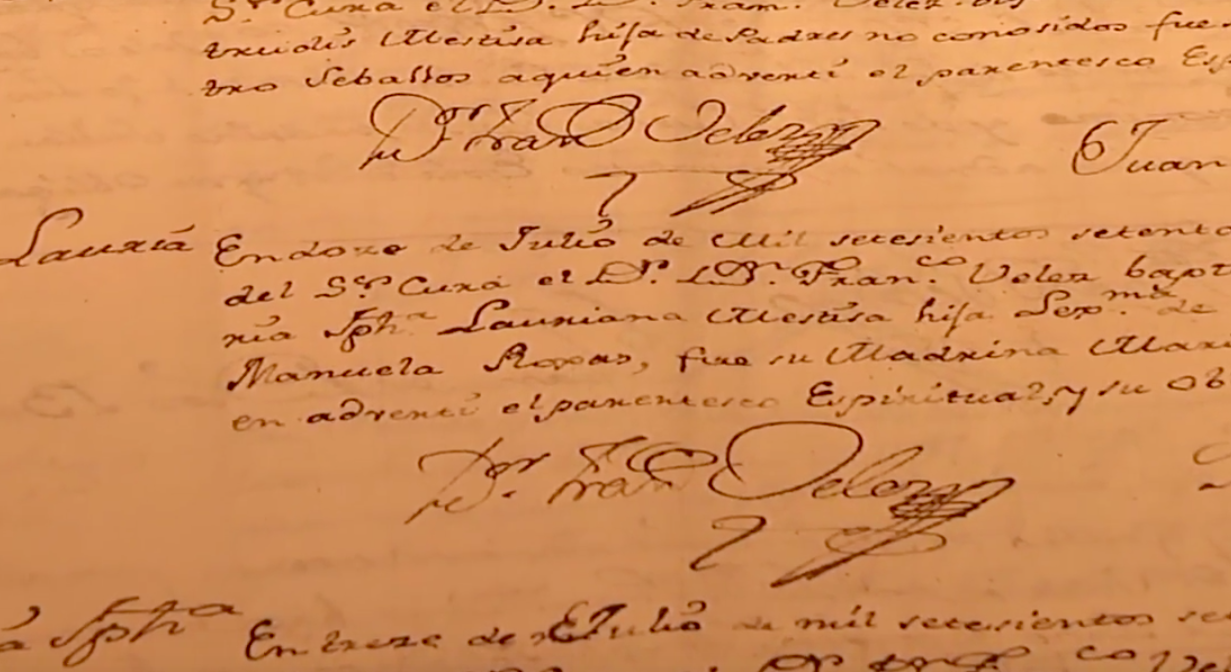 S.r Cura el D. D. Fran. Velez. bis
trudis Mestisa hija de Padres no conosidos fue
tro Seballos aquien adverti el parentesco Esp
D.r Fran Velez
Juan
Lauria
En doze de Julio de Mil setesientos setenta
del S.r Cura el D.r D.n Fran.co Velez bapt
ria Jph.a Lauriana Mestisa hija Lex.ma de
Manuela Roxas, fue su Madrina Mari
en adverti el parentesco Espiritual, y su ob
D.r Fran Velez
a Jph.a
En treze de Julio de mil setesientos se